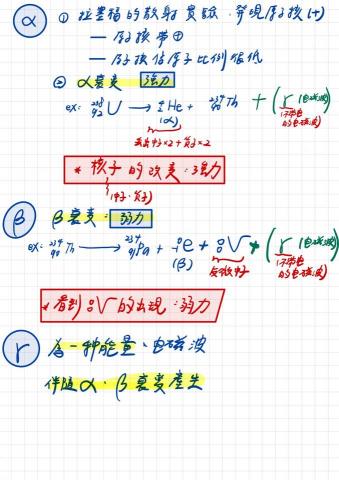 α ① 拉塞福的散射實驗.發現原子核(+)
— 原子核帶⊕
— 原子核佔原子比例很低
② α衰變 強力
ex: ²³⁸₉₂U → ⁴₂He + ²³⁴₉₀Th + (γ (電磁波)
(α) 不帶電的電磁波)
中子×2+質子×2
* 核子的改變:強力
(中子.質子)
β β衰變: 弱力
ex: ²³⁴₉₀Th → ²³⁴₉₁Pa + ⁰₋₁e + ⁰₀ν + (γ (電磁波)
(β) 反微中子 不帶電的電磁波)
*看到⁰₀ν的出現:弱力
γ 為一種能量、電磁波
伴隨α、β衰變產生